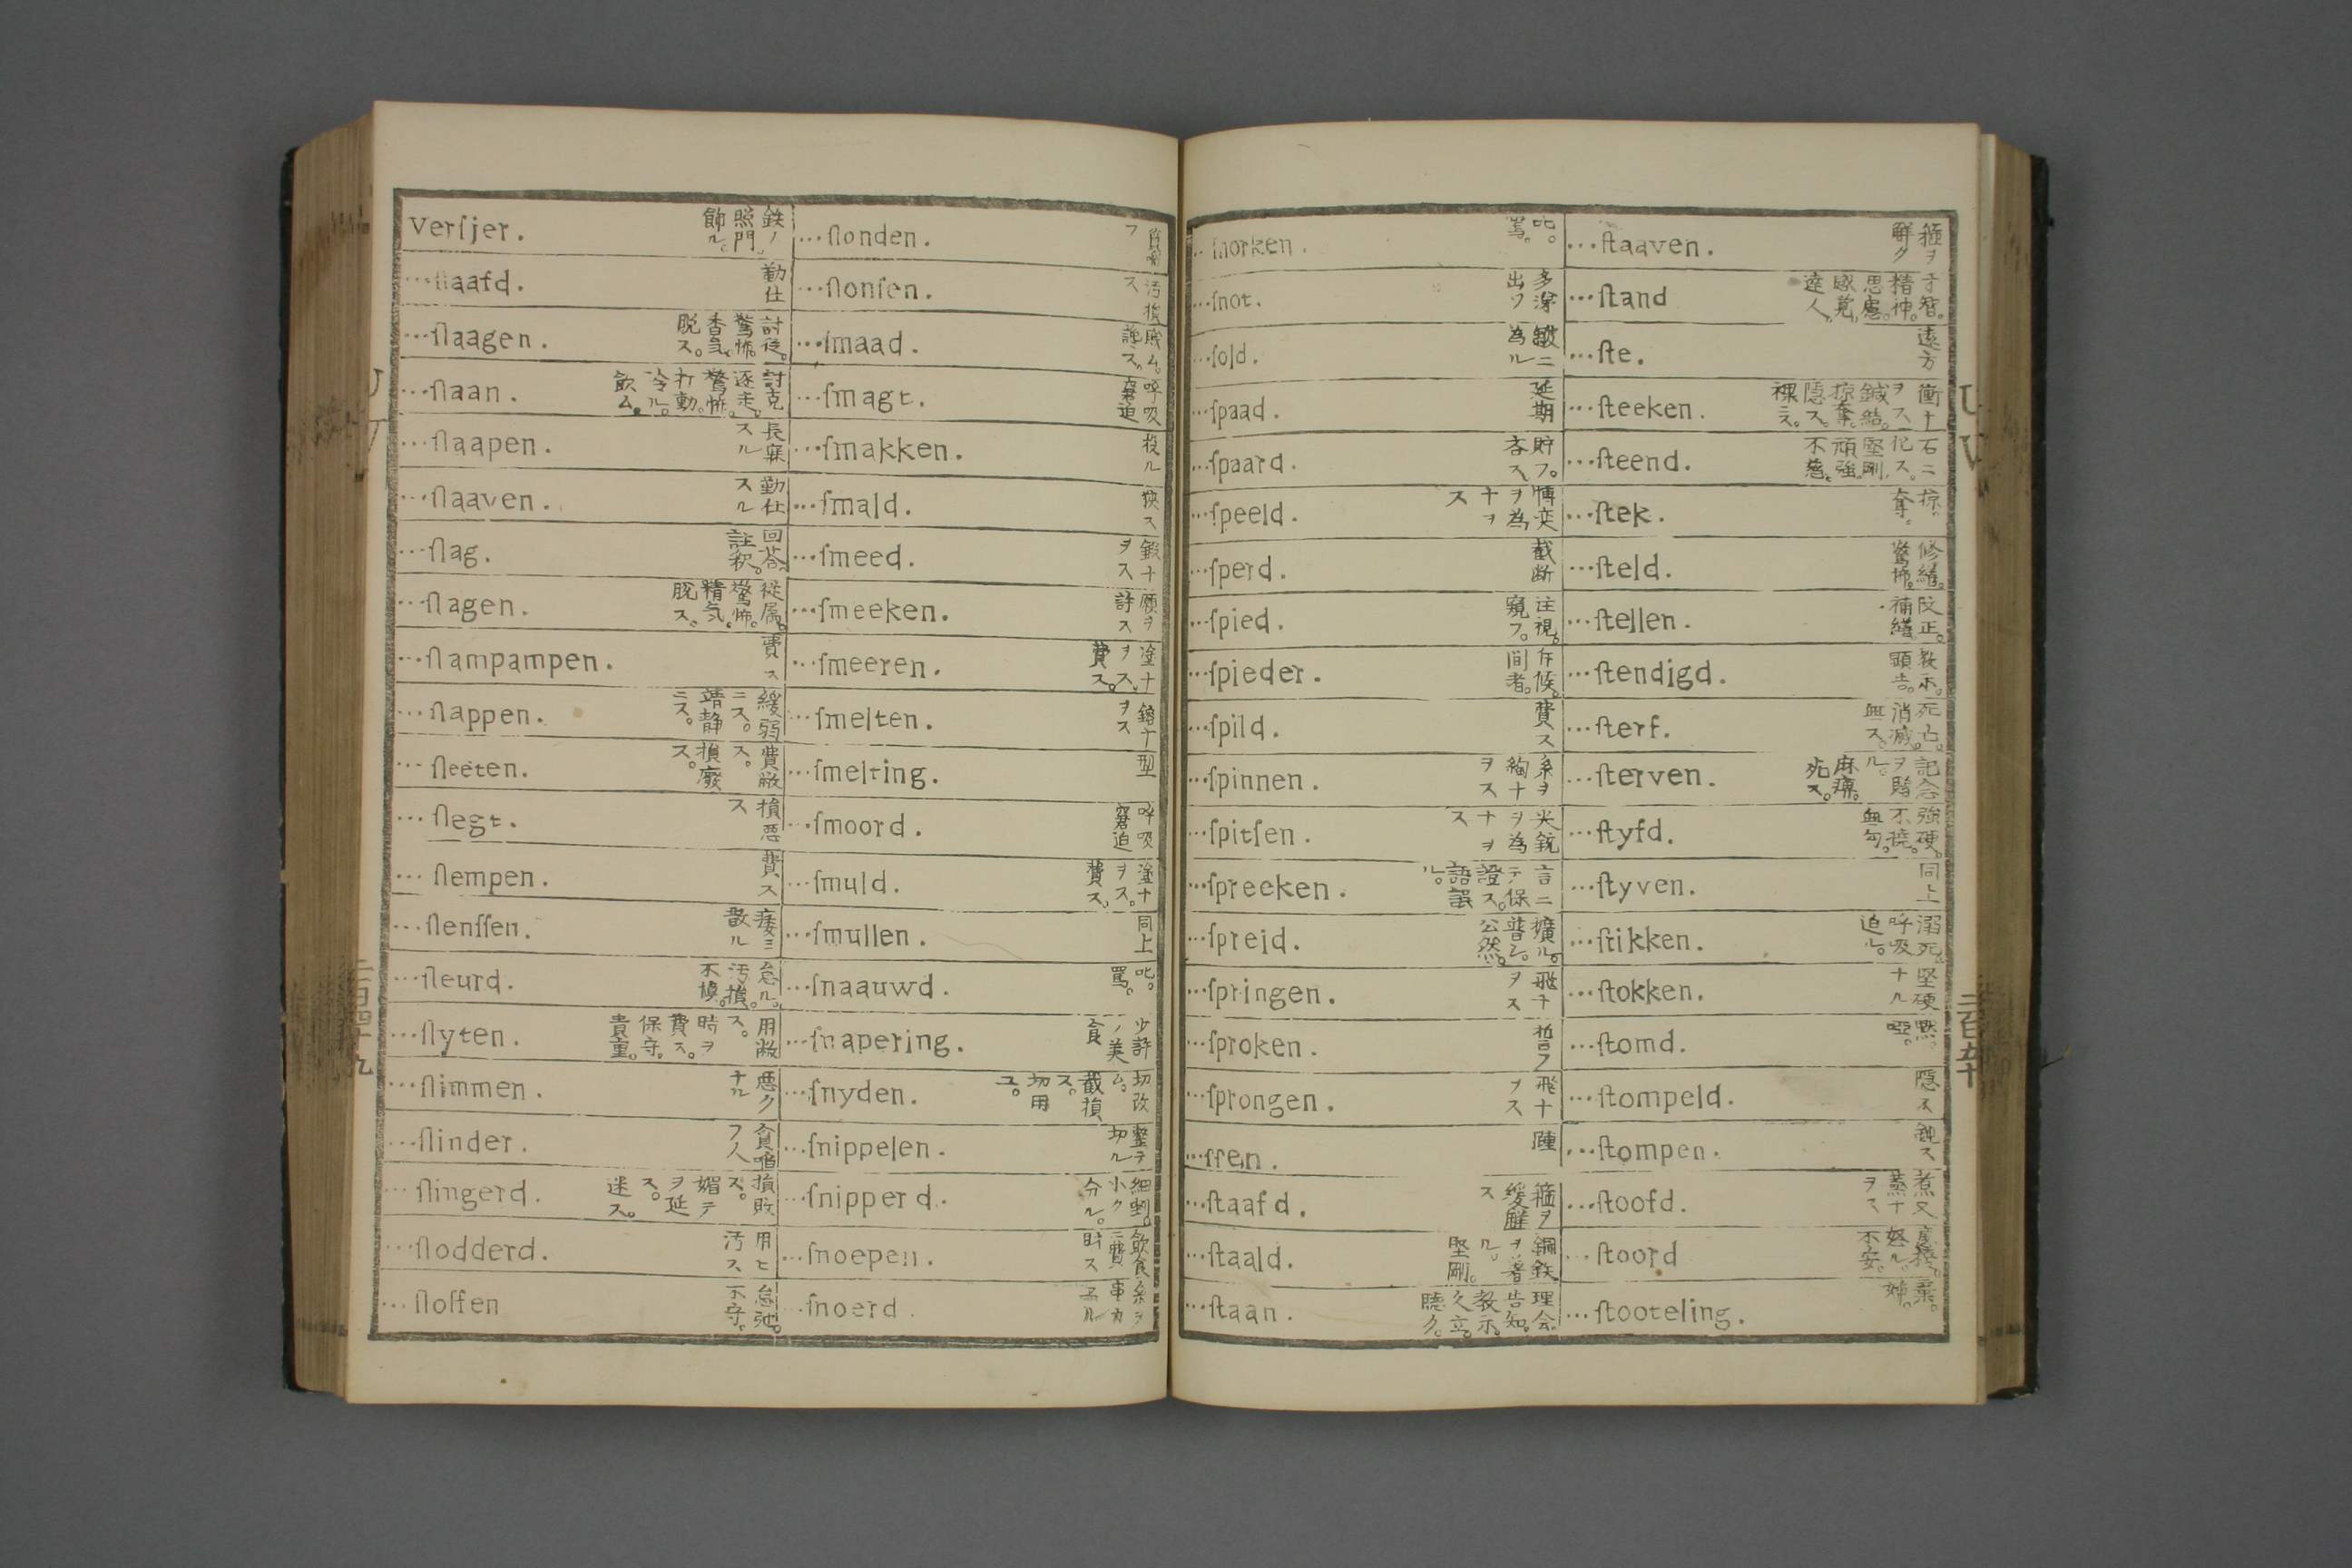 Verſijer. 鉄ノ照門。飾ル。
…ſlaafd. 勤仕
…ſlaagen. 驚怖。香気。脱ス。
…ſlaan. 討克。逐走。驚怖。打動。冷ル。飲ム。
…ſlaapen. 長寐スル
…ſlaaven. 勤仕スル
…ſlag. 回荅。註釈。
…ſlagen. 従属。驚怖。精気。脱ス。
…ſlampampen. 費ス
…ſlappen. 緩弱ニス。靖静ニス。
…ſleeten. 費敝ス。損廢ス。
…ſlegt. 損悪ス
…ſlempen. 費ス
…ſlenſſen. 痿ミ散ル
…ſleurd. 怠ル。汚損。不懆。
…ſlyten. 用敝ス。時ヲ費ス。保守。貴重。
…ſlimmen. 悪クナル
…ſlinder. 貪啗フ人
…ſlingerd. 損敗ス。媚テヲ延ス。迷ス。
…ſlodderd. 用ヒ汚ス
…ſloffen 怠弛。不守。
…ſlonden.
…ſlonſen. 汚損ス
…ſmaad.
…ſmagt. 呼吸窘迫
…ſmakken. 投ル
…ſmald. 狭ス
…ſmeed. 鍛十ヲス
…ſmeeken. 願ヲ許ス
…ſmeeren. 塗十ヲス。費ス。
…ſmelten. 鎔十ヲス
…ſmelting. 型
…ſmoord. 呼吸窘迫
…ſmuld. 塗十ヲス。費ス。
…ſmullen. 同上
…ſnaauwd. 叱。罵。
…ſnapering. 少許ノ美食
…ſnyden. 切改ム。截損ス。切用ユ。
…ſnippelen. 整テ切ル
…ſnipperd. 細剉。小ク分ル。
…ſnoepen. 飲食ニ費財ス
…ſnoerd.
二百四十九
…ſnorken. 叱。罵。
…ſnot. 多溧出ツ
…ſold. 皺ニ為ル
…ſpaad. 延期
…ſpaard. 貯フ。吝ス
…ſpeeld. 博奕ヲ為十ヲス
…ſperd. 截断
…ſpied. 注視。窺フ。
…ſpieder. 斥候。间者。
…ſpild. 費ス
…ſpinnen. 糸ヲ綯十ヲス
…ſpitſen. 尖鋭ヲ為十ヲス
…ſpreeken. 言ニテ保證ス。語誤ル。
…ſpreid. 擴ル。普シ。公然。
…ſpringen. 飛十ヲス
…ſproken. 哲フ
…ſprongen. 飛十ヲス
…ſſen. 踵
…ſtaafd. 箍ヲ緩觧ス
…ſtaald. 鋼鉄ヲ着ル。堅剛。
…ſtaan. 理会。告知。教示。久立。聴ク。
…ſtaaven. 箍ヲ觧ク
…ſtand 才智。精神。思慮。感覚。達人。
…ſte. 遠方
…ſteeken. 衝十ヲス。鍼結。掠奪。隠ス。裸ニス。
…ſteend. 石ニ化ス。堅剛。頑強。不慈。
…ſtek. 掠。奪。
…ſteld. 修繕。驚怖。
…ſtellen. 改正。補繕。
…ſtendigd. 教示。顕告。
…ſterf. 死亡。消滅。無ス。
…ſterven. 記念ヲ贈ル。麻痺。死ス。
…ſtyfd. 強硬。不撓。
…ſtyven. 同上
…ſtikken. 溺死。呼吸迫ル。
…ſtokken. 堅硬ナル
…ſtomd. 黙。啞。
…ſtompeld. 隠ス
…ſtompen. 鈍ス
…ſtoofd. 煮又蒸十ヲス
…ſtoord 怒ル。不安。
…ſtooteling. 棄。
二百五十